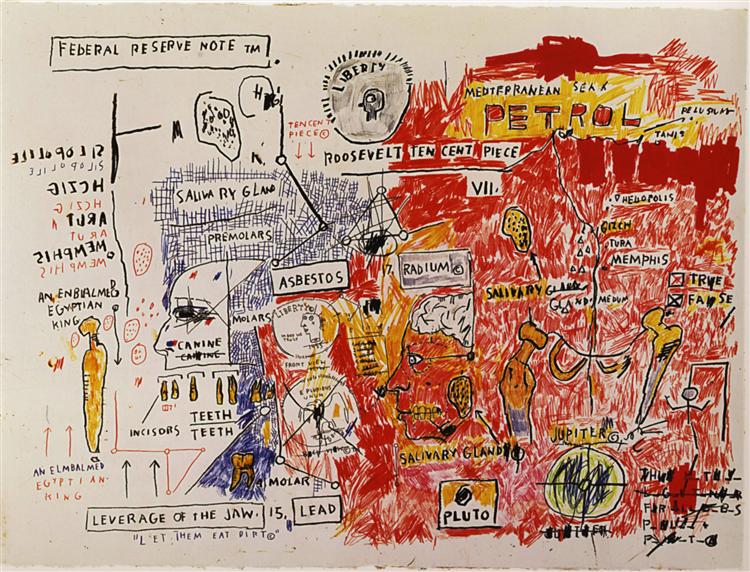 FEDERAL RESERVE NOTE TM
LIBERTY
TEN CENT
PIECE©
ROOSEVELT TEN CENT PIECE
VII.
MEDITERRANEAN SEA
PETROL
PELUSIUM
TANIS
HELIOPOLIS
GIZCH
TURA
MEMPHIS
MEDUM
TRUE
FALSE
SALIVARY GLAND
PREMOLARS
ASBESTOS
RADIUM©
SALIVARY GLAND
GLAND
MEMPHIS
MEMPHIS
AN ENBIALMED
EGYPTIAN
KING
MOLARS
CANINE
CANINE
LIBERTY
FRONT VIEW
E PLURIBUS
INCISORS
TEETH
TEETH
SALIVARY GLAND
JUPITER©
AN ELMBALMED
EGYPTIAN-
KING
MOLAR
LEVERAGE OF THE JAW.
15,
LEAD
PLUTO
"LET THEM EAT DIRT©"